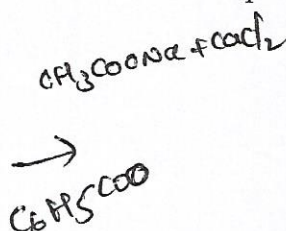 CH3COONa + CaCl2
→
C6H5COO